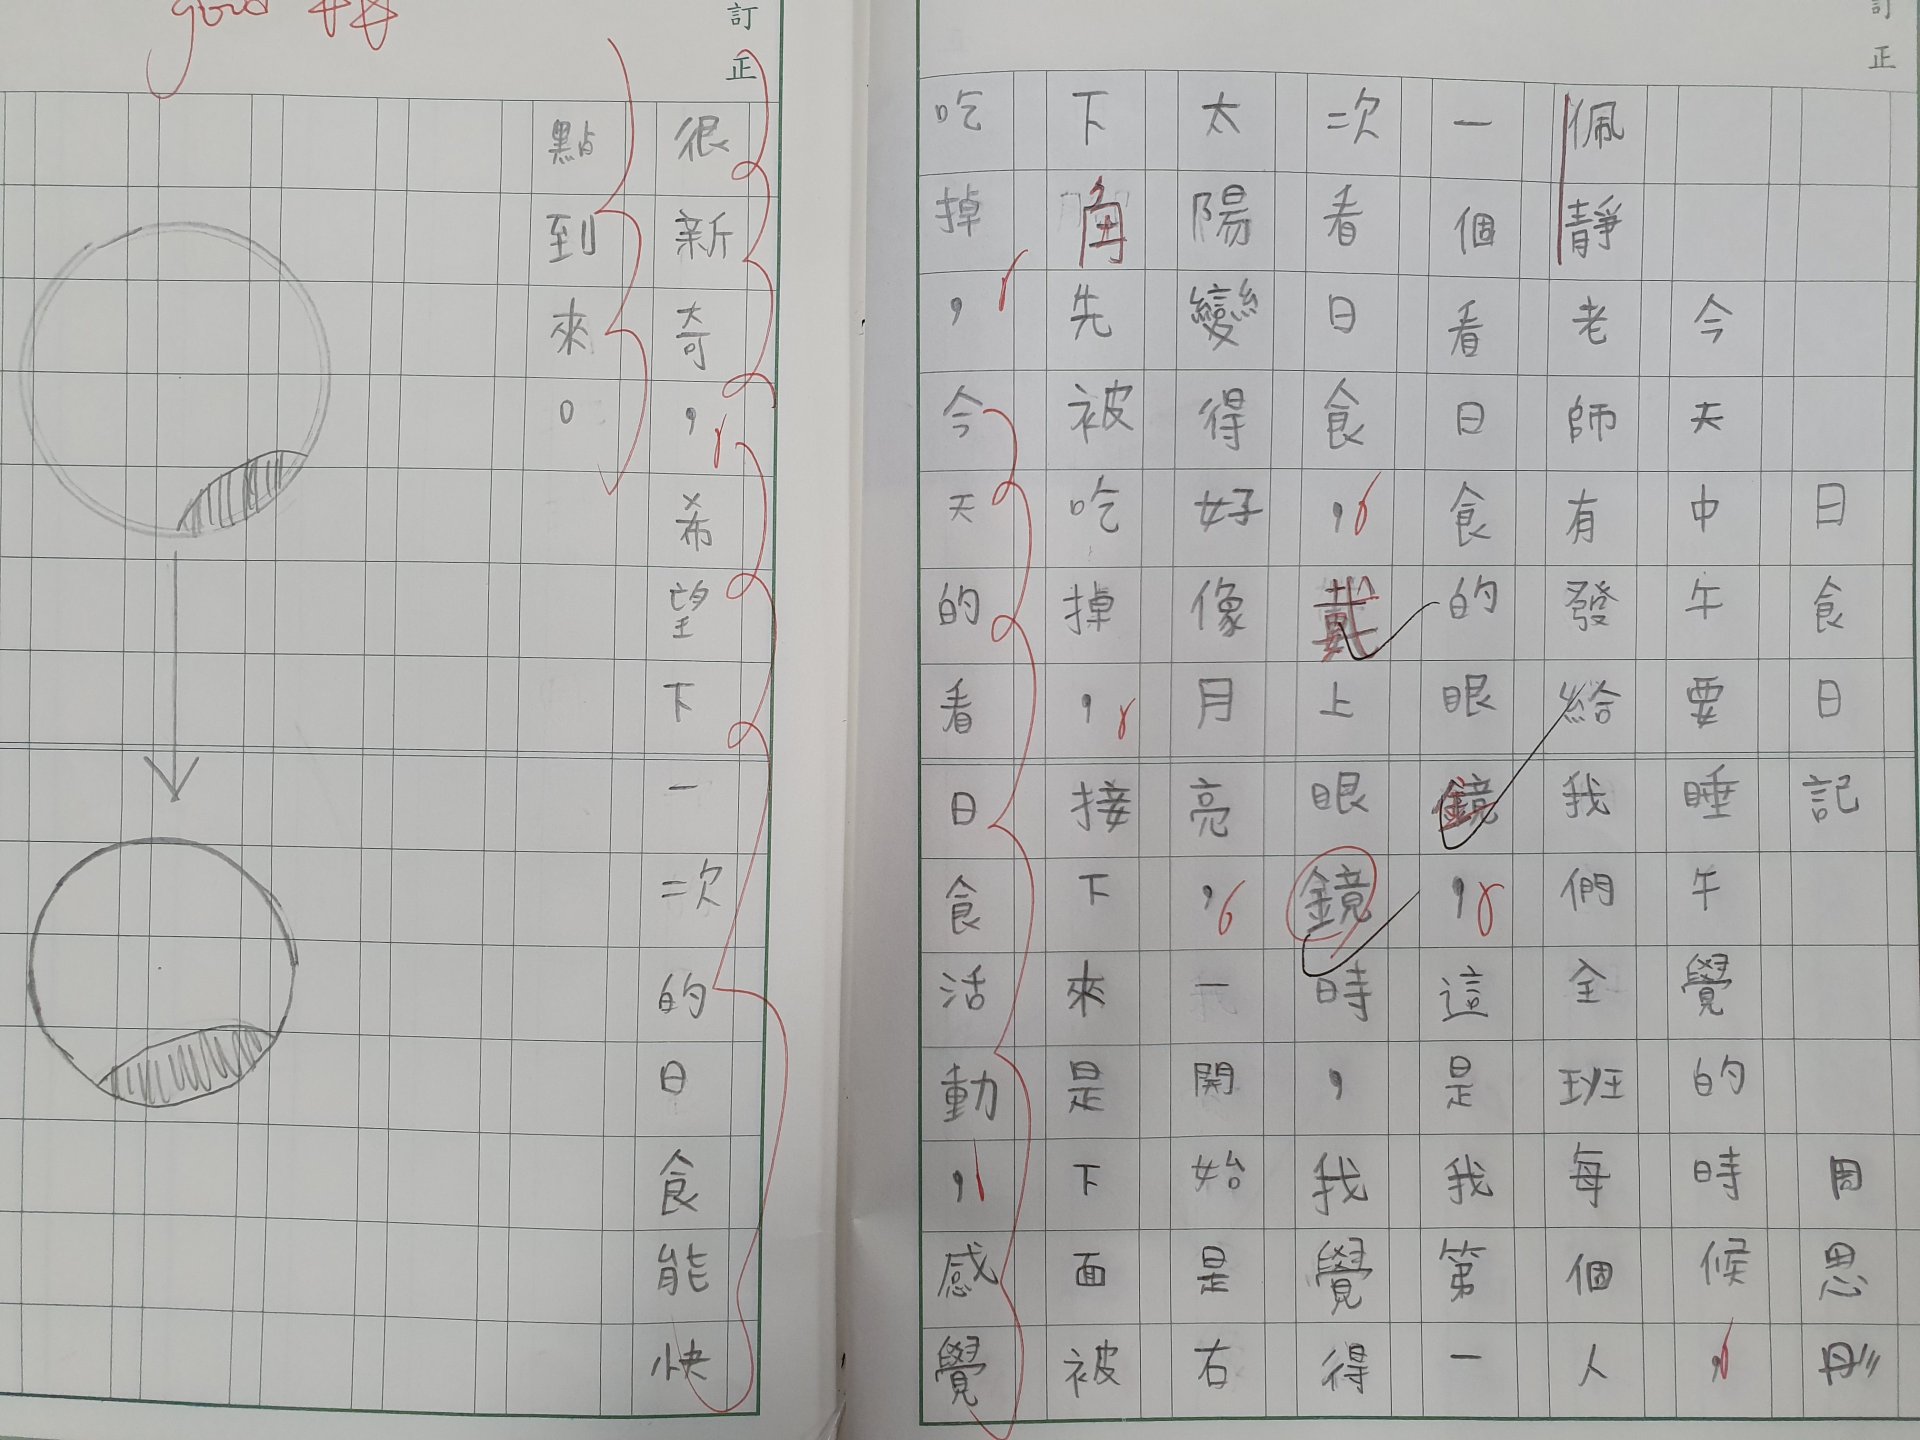 訂正
日食日記 周思彤
今天中午要睡午覺的時候,
佩靜老師有發給我們全班每個人
一個看日食的眼鏡,這是我第一
次看日食,戴上眼鏡時,我覺得
太陽變得好像月亮,一開始是右
下角先被吃掉,接下來是下面被
吃掉,今天的看日食活動,感覺
訂正
good
很新奇,希望下一次的日食能快
點到來。